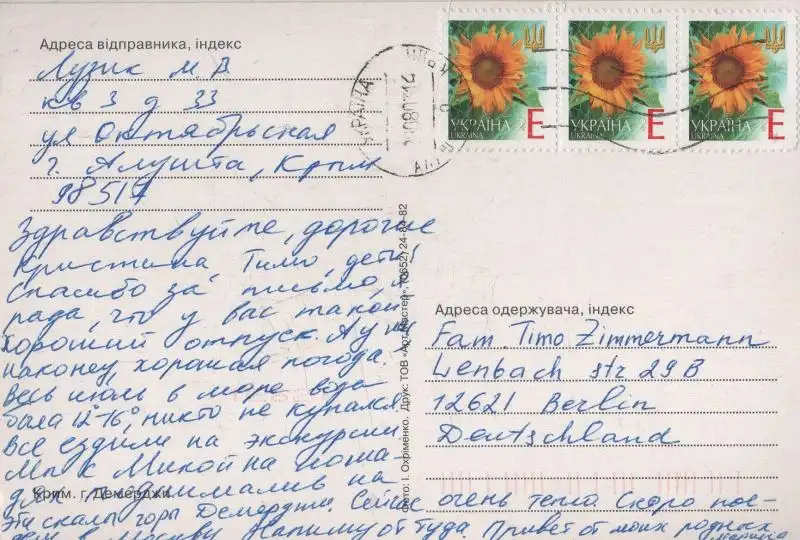 Адреса відправника, індекс
Лузик М. В.
кв 3 д 33
ул Октябрьская
г. Алушта, Крым
98517
УКРАЇНА
UKRAINA
E
УКРАЇНА
UKRAINA
E
УКРАЇНА
UKRAINA
E
УКРАЇНА
Здравствуйте, дорогие
Кристина, Тимо, дети!
Спасибо за письмо, я
рада, что у вас такой
хороший отпуск. А у нас
наконец хорошая погода.
Весь июль в море вода
была 12°-16°, никто не купался
Все ездили на экскурсии
Мы с Микой на лоша-
дях поднимались на
эти скалы горы Демерджи. Сейчас очень тепло. Скоро пое-
дем в Москву. Напишу оттуда. Привет от моих родных
Марина
Крим. г. Демерджи
Фото: І. Охріменко. Друк: ТОВ «Арт Мастер», (0652) 24-89-82
Адреса одержувача, індекс
Fam. Timo Zimmermann
Lenbach str 29B
12621 Berlin
Deutschland